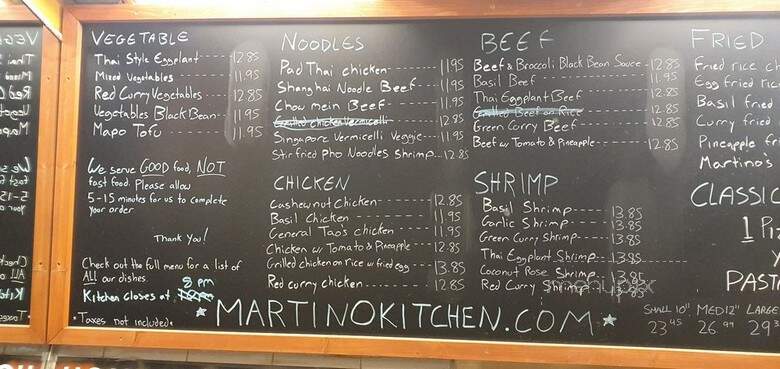 VEGETABLE
Thai Style Eggplant 12.85
Mixed Vegetables 11.95
Red Curry Vegetables 12.85
Vegetables Black Bean 11.95
Mapo Tofu 11.95
We serve GOOD food, NOT
fast food. Please allow
5-15 minutes for us to complete
your order
Thank You!
Check out the full menu for a list of
ALL our dishes.
8 pm
Kitchen closes at
•Taxes not included•
NOODLES
Pad Thai chicken 11.95
Shanghai Noodle Beef 11.95
Chow mein Beef 11.95
Grilled chicken Vermicelli 12.85
Singapore Vermicelli Veggie 11.95
Stir fried Pho Noodles Shrimp 12.85
CHICKEN
Cashewnut Chicken 12.85
Basil Chicken 11.95
General Tao's chicken 11.95
Chicken w/ Tomato & Pineapple 12.85
Grilled chicken on rice w/ fried egg 13.85
Red curry chicken 12.85
BEEF
Beef & Broccoli Black Bean Sauce 12.85
Basil Beef 11.95
Thai Eggplant Beef 12.85
Grilled Beef on Rice 12.85
Green Curry Beef 12.85
Beef w/ Tomato & Pineapple 12.85
SHRIMP
Basil Shrimp 13.85
Garlic Shrimp 13.85
Green Curry Shrimp 13.85
Thai Eggplant Shrimp 13.85
Coconut Rose Shrimp 13.85
Red Curry Shrimp 13.85
MARTINOKITCHEN.COM
FRIED
Fried rice ch
Egg fried ric
Basil fried
Curry fried
Pineapple fri
Martino's
CLASSIC
1 Piz
PASTA
SMALL 10" MED 12" LARGE
23.45 26.99 29.3